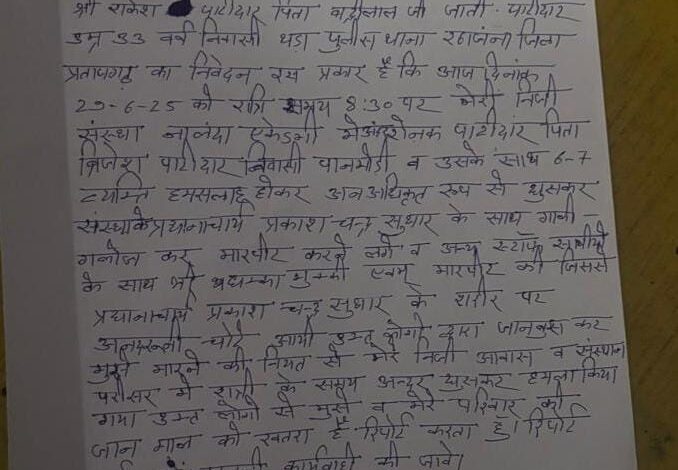 श्री राकेश पाटीदार पिता बद्रीलाल जी जाती. पाटीदार
उम्र 33 वर्ष निवासी थडा पुलीस थाना रठांजना जिला
प्रतापगढ़ का निवेदन इस प्रकार है कि आज दिनांक
29-6-25 को रात्रि समय 8:30 पर मेरी निजी
संस्था नालंदा एकेडमी में पाटीदार पिता
ब्रिजेश पाटीदार निवासी पानमोडी व उसके साथ 6-7
व्यक्ति हमसलाह होकर अनअधिकृत रूप से घुसकर
संस्था के प्रधानाचार्य प्रकाश चन्द्र सुथार के साथ गाली-
गलोज कर मारपीट करने लगे व अन्य स्टाफ साथीयो
के साथ भी धक्का मुक्की एवम् मारपीट की जिससे
प्रधानाचार्य प्रकाश चन्द्र सुथार के शरीर पर
अन्दरूनी चोटे आयी उक्त लोगो द्वारा जानबुझ कर
मुझे मारने की नियत से मेरे निजी आवास व संस्थान
परीसर में रात्री के समय अन्दर घुसकर हमला किया
गया उक्त लोगो से मुझे व मेरे परिवार को
जान माल को खतरा है रिपोर्ट करता हु। रिपोर्ट
कार्यवाही की जावे।